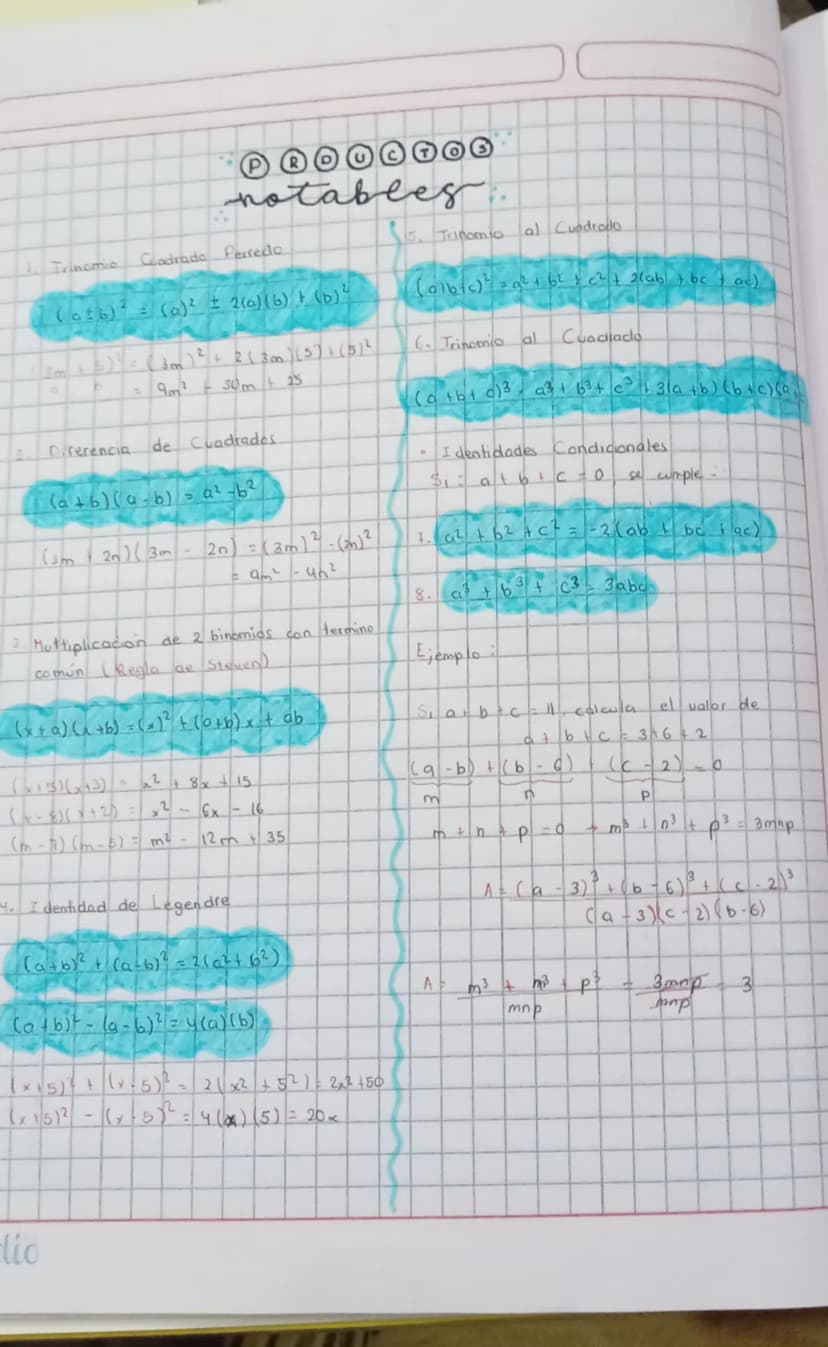 PRODUCTOS
notables
1. Trinomio Cuadrado Perfecto
(a ± b)² = (a)² ± 2(a)(b) + (b)²
(3m + 5)² = (3m)² + 2(3m)(5) + (5)²
a b = 9m² + 30m + 25
2. Diferencia de Cuadrados
(a + b)(a - b) = a² - b²
(3m + 2n)(3m - 2n) = (3m)² - (2n)²
= 9m² - 4n²
3. Multiplicación de 2 binomios con termino
común (Regla de Steven)
(x + a)(x + b) = (x)² + (a + b)x + ab
(x + 5)(x + 3) = x² + 8x + 15
(x - 8)(x + 2) = x² - 6x - 16
(m - 7)(m - 5) = m² - 12m + 35
4. Identidad de Legendre
(a + b)² + (a - b)² = 2(a² + b²)
(a + b)² - (a - b)² = 4(a)(b)
(x + 5)² + (x - 5)² = 2(x² + 5²) = 2x² + 50
(x + 5)² - (x - 5)² = 4(x)(5) = 20x
5. Trinomio al Cuadrado
(a + b + c)² = a² + b² + c² + 2(ab + bc + ac)
6. Trinomio al Cuadrado
(a + b + c)³ = a³ + b³ + c³ + 3(a + b)(b + c)(a
• Identidades Condicionales
Si: a + b + c = 0, se cumple:
a² + b² + c² = -2(ab + bc + ac)
8. a³ + b³ + c³ = 3abc
Ejemplo:
Si a + b + c = 11, calcula el valor de
a + b + c = 3 + 6 + 2
(a - b) + (b - 6) + (c - 2) = 0
m n p
m + n + p = 0 → m³ + n³ + p³ = 3mnp
A = (a - 3)³ + (b - 6)³ + (c - 2)³
(a - 3)(c - 2)(b - 6)
A = m³ + n³ + p³ = 3mnp = 3
mnp mnp
lio